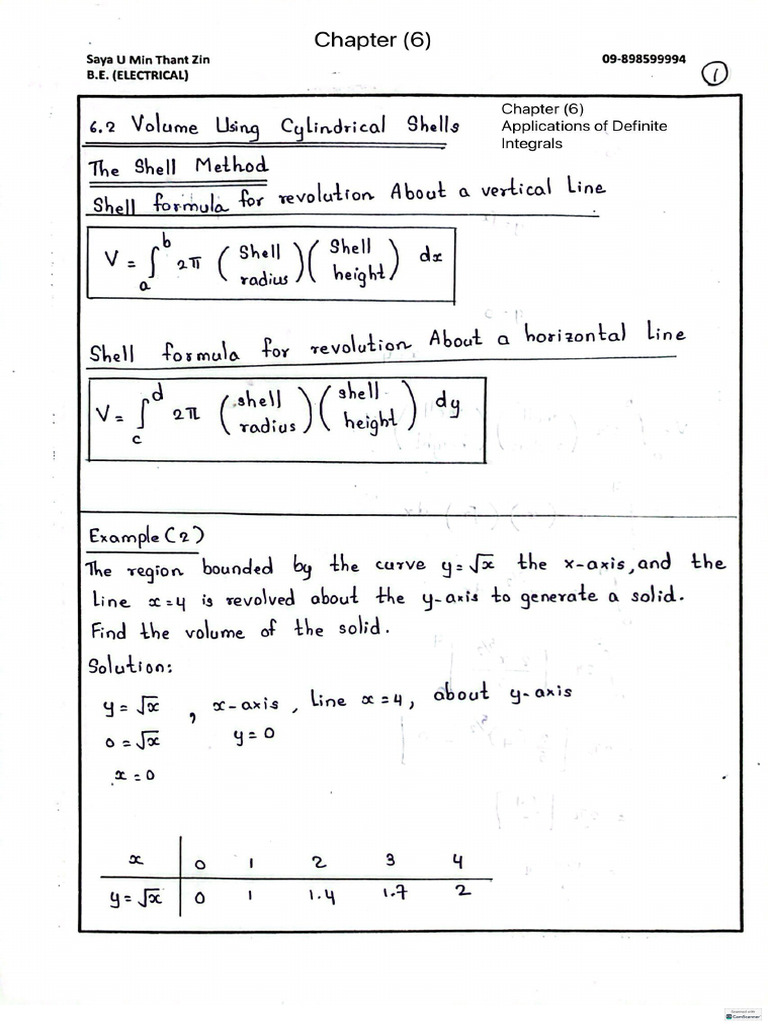 Chapter (6)
Saya U Min Thant Zin
09-898599994
B.E. (ELECTRICAL)
1
Chapter (6)
Applications of Definite
Integrals
6.2 Volume Using Cylindrical Shells
The Shell Method
Shell formula for revolution About a vertical Line
V = ∫_a^b 2π (Shell radius)(Shell height) dx
Shell formula for revolution About a horizontal Line
V = ∫_c^d 2π (shell radius)(shell height) dy
Example (2)
The region bounded by the curve y=√x the x-axis, and the
Line x=4 is revolved about the y-axis to generate a solid.
Find the volume of the solid.
Solution:
y = √x , x-axis , Line x=4, about y-axis
0 = √x y=0
x = 0
x 0 1 2 3 4
y = √x 0 1 1.4 1.7 2
Scanned with
CamScanner